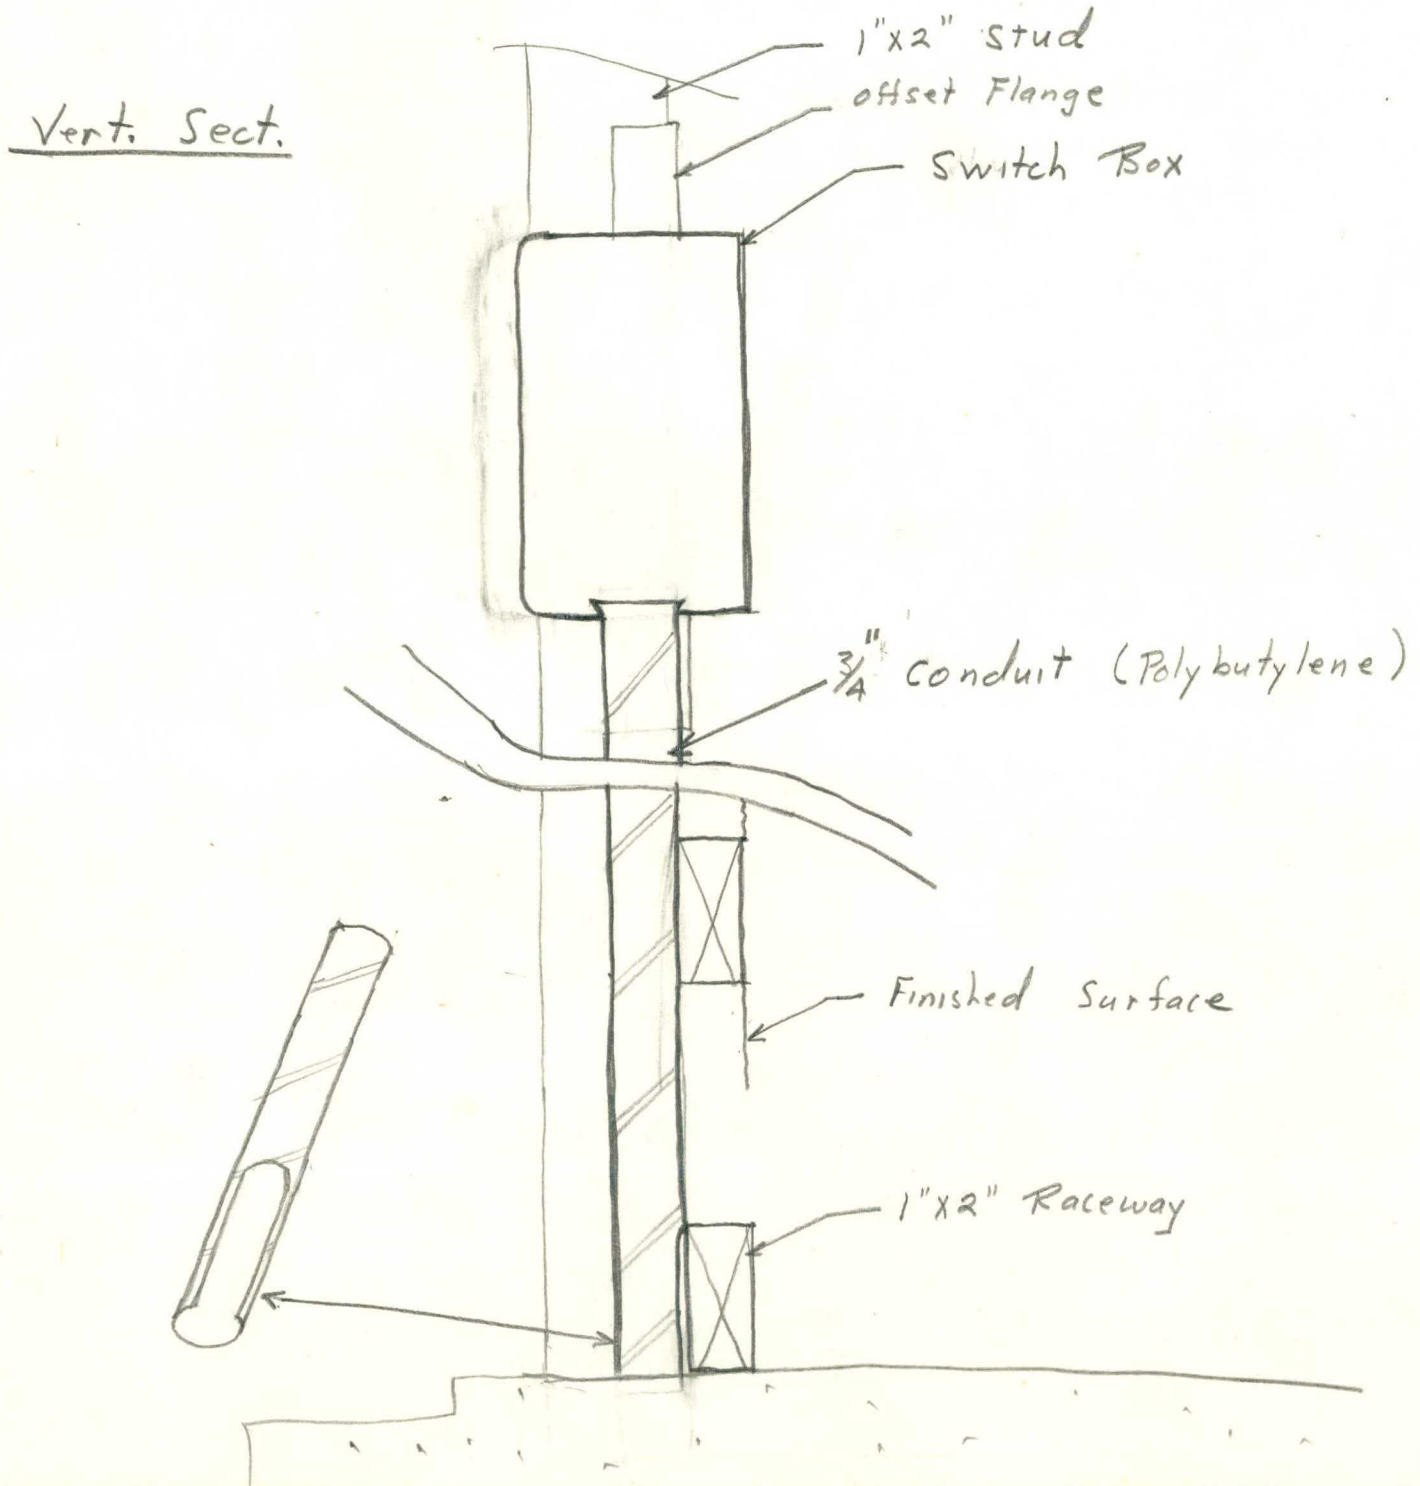 Vert. Sect.
1"x2" Stud
offset Flange
Switch Box
3/4" Conduit (Polybutylene)
Finished Surface
1"x2" Raceway